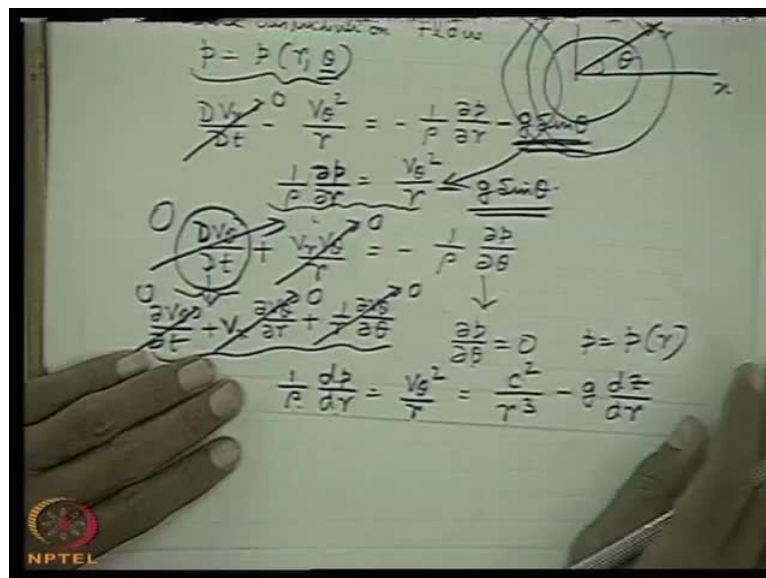 Flow
p = p(r, θ)
θ
x
DVr/Dt 0 - Vθ²/r = - 1/ρ ∂p/∂r - g Sinθ
1/ρ ∂p/∂r = Vθ²/r - g Sinθ.
0 DVθ/Dt + VrVθ/r 0 = - 1/ρ ∂p/∂θ
0 ∂Vθ/∂t + Vr ∂Vθ/∂r 0 + 1/r ∂Vθ/∂θ 0
∂p/∂θ = 0 p = p(r)
1/ρ dp/dr = Vθ²/r = c²/r³ - g dz/dr
NPTEL